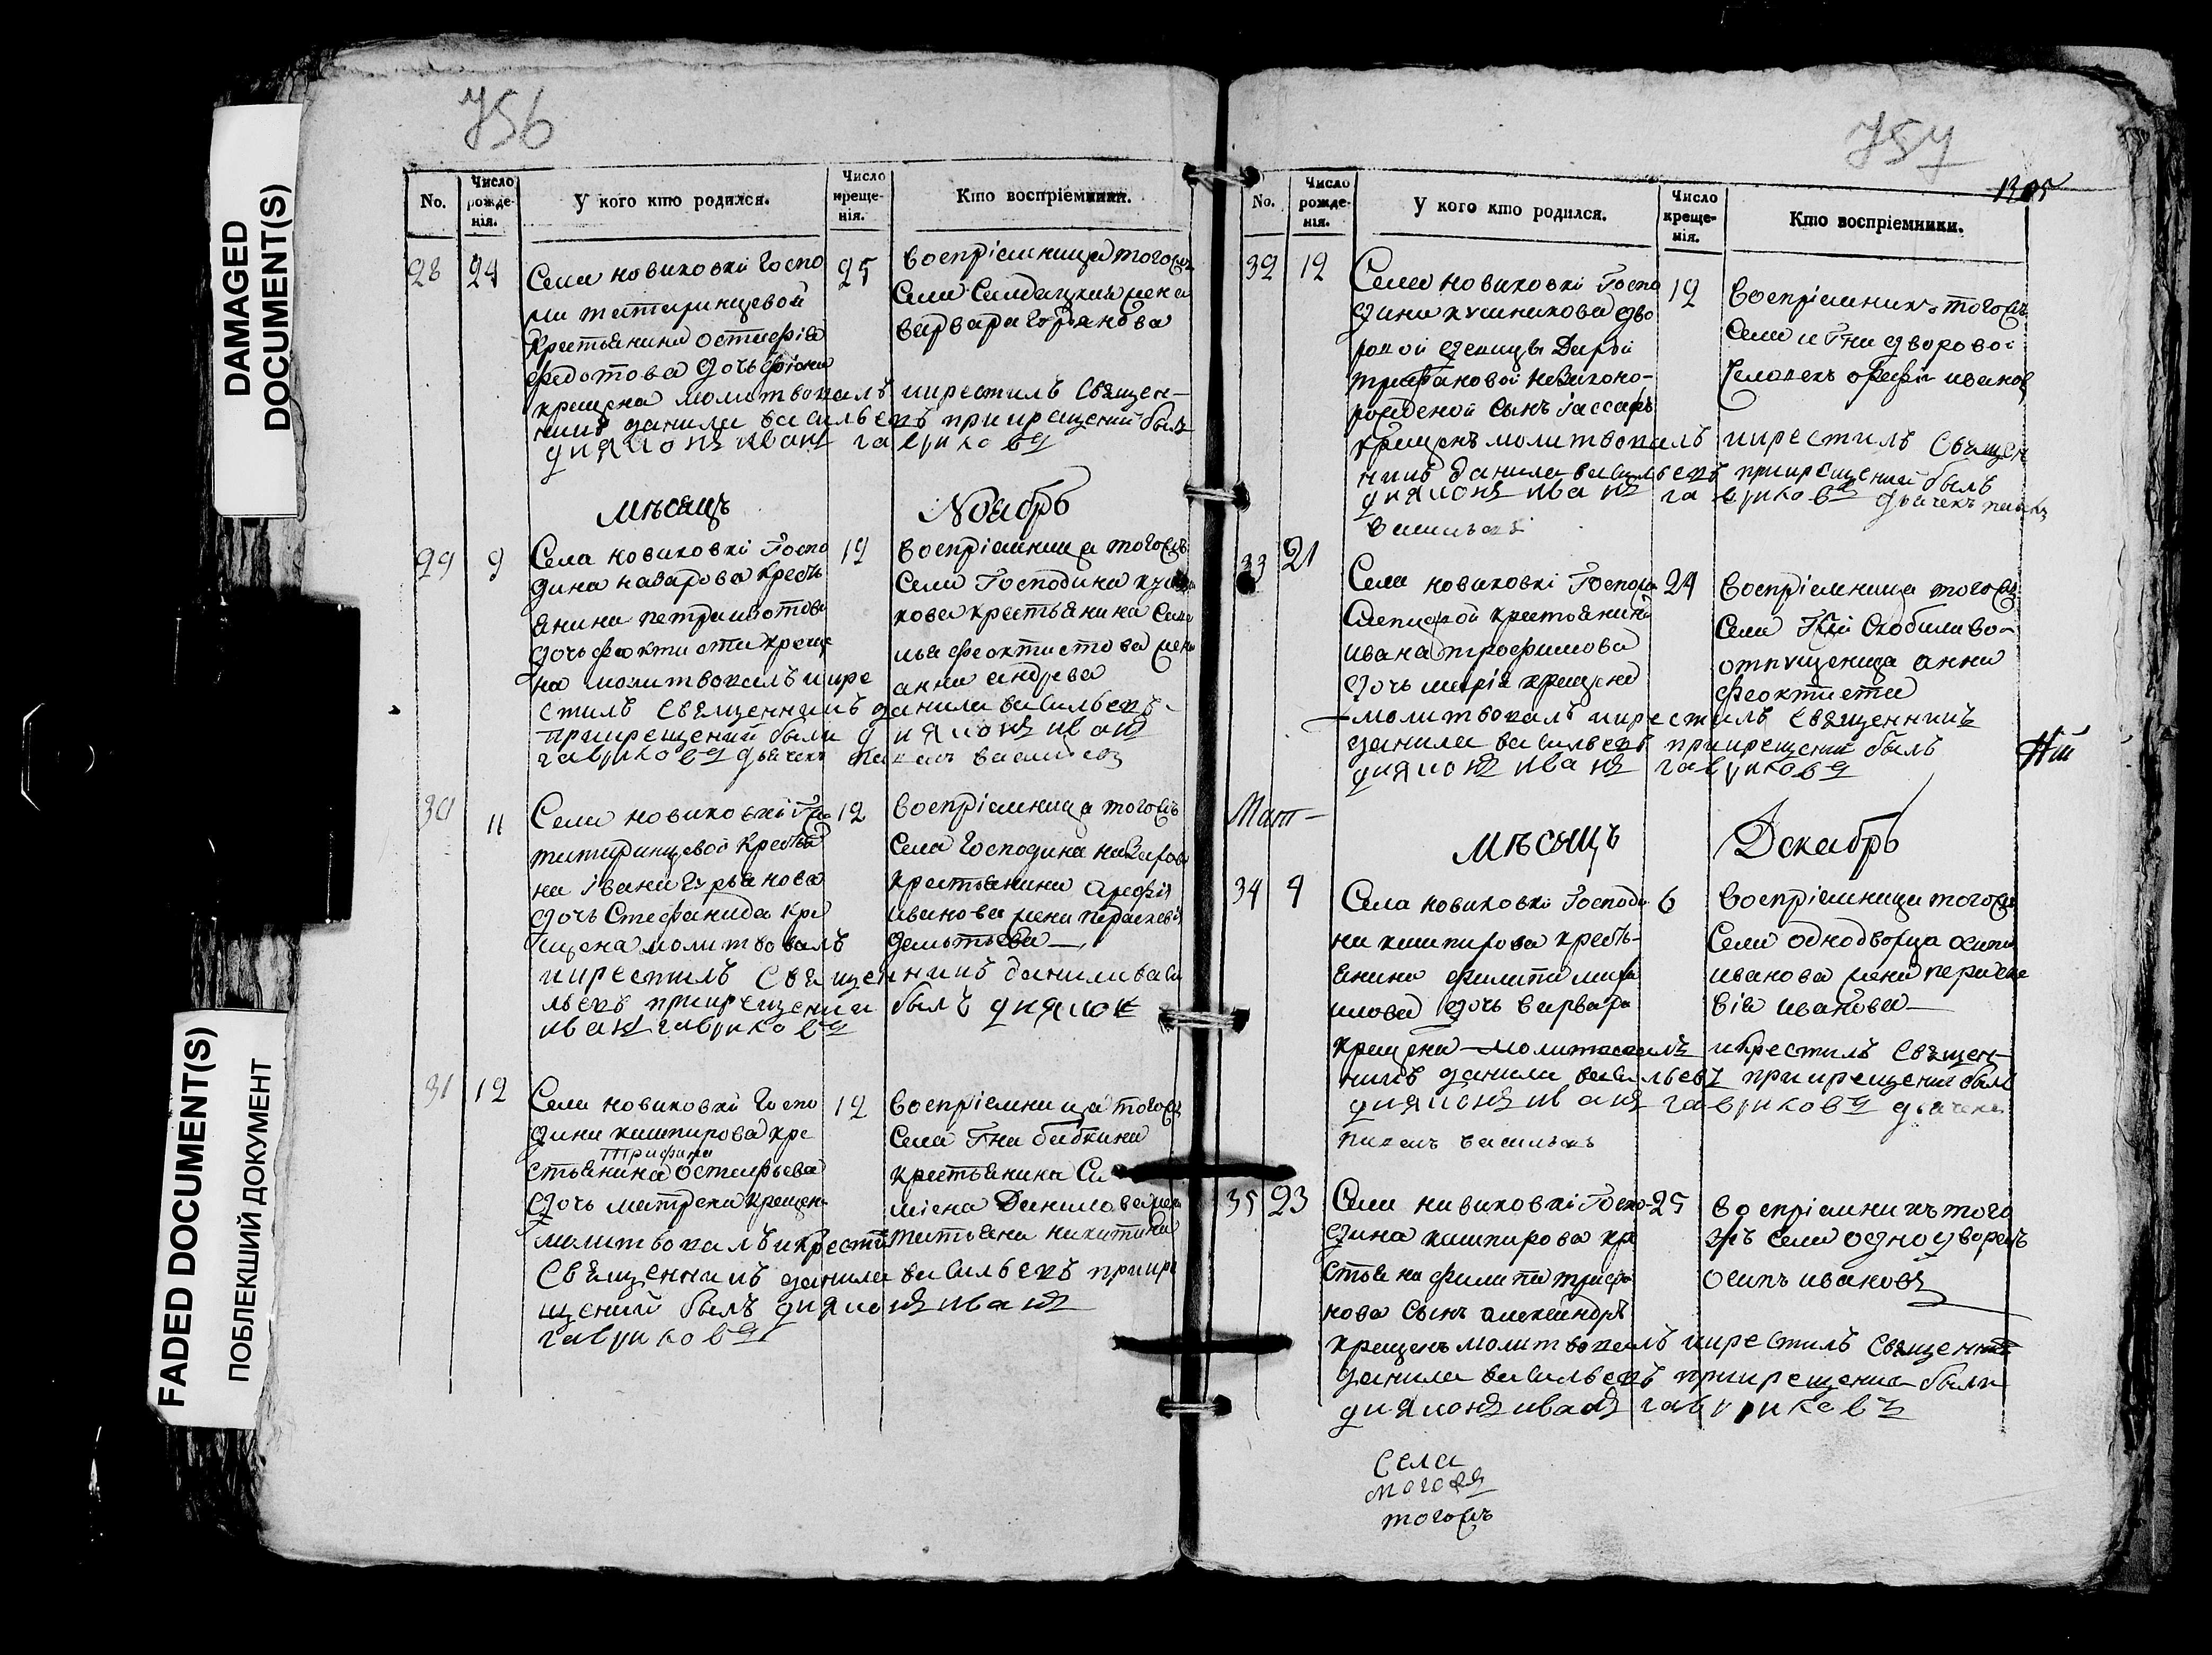 DAMAGED
DOCUMENT(S)
FADED DOCUMENT(S)
ПОБЛЕКШИЙ ДОКУМЕНТ
756
No.
Число рожде-нія.
У кого кто родился.
Число креще-нія.
Кто воспріемники.
28 24
Села новиковкі Госпо
крестьянина
Федотова дочь
крещена молитвовалъ икрестилъ Священ-
никъ данила васильевъ прикрещеніи былъ
дияконъ иванъ гавриковъ
25
воспріемница тогожъ
Села Салдацкая жена
варвара
Мѣсяцъ Ноябрь
29 9
Села новиковкі Госпо
дина назарова кресть
янина петра
дочь феоктиста креще
на молитвовалъ икре
стилъ Священникъ данила васильевъ
прикрещеніи были дияконъ иванъ
гавриковъ дьячекъ васильевъ
12
воспріемница тогожъ
Села Господина
кова крестьянина
феоктистова жена
анна андрева
30 11
Села новиковкі
кресть
на івана гурьянова
дочь Стефанида кре
щена молитвовалъ
икрестилъ Священникъ данила васи
льевъ прикрещеніи былъ диякон
иванъ гавриковъ
12
воспріемница тогожъ
Села Господина назарова
крестьянина арефія
иванова жена параскевія
31 12
Села новиковкі Госпо
дина кашпирова кре
Трифона
стьянина Остафьева
дочь матрена крещена
молитвовалъ икрести
Священникъ данила васильевъ прикре
щеніи былъ диякон иванъ
гавриковъ
12
воспріемница тогожъ
Села Гна бабкина
крестьянина
Данилова жена
татьяна никитина
757
1305
No.
Число рожде-нія.
У кого кто родился.
Число креще-нія.
Кто воспріемники.
32 12
Села новиковкі Госпо
дина кушникова дво
ровой девицы Дарьи
трифановой незаконо-
рожденой сынъ
крещенъ молитвовалъ икрестилъ Священ
никъ данила васильевъ прикрещеніи былъ
диякон иванъ гавриковъ дьячекъ
васильевъ
12
воспріемникъ тогожъ
Села и Гна дворовой
человекъ арефій иванов
33 21
Села новиковкі Госпожи
крестьянина
ивана трофимова
дочь марія крещена
молитвовалъ икрестилъ Священникъ
данила васильевъ прикрещеніи былъ
диякон иванъ гавриковъ
24
воспріемница тогожъ
Села
отпущеница анна
феоктиста
Мѣсяцъ Декабрь
34 4
Села новиковкі Господи
на кашпирова кресть-
янина филипа
дочь варвара
крещена молитвовалъ икрестилъ Священ-
никъ данила васильевъ прикрещеніи былъ
диякон иванъ гавриковъ дьячекъ
васильевъ
6
воспріемница тогожъ
Села однодворца осипа
иванова жена параске
вія иванова
35 23
Села новиковкі Госпо-
дина кашпирова кре
стьяна филипа трифа
нова сынъ александръ
крещенъ молитвовалъ икрестилъ Священникъ
данила васильевъ прикрещеніи были
диякон иванъ гавриковъ
25
воспріемникъ того
жъ села однодворецъ
осипъ ивановъ
Села
тогожъ
тогожъ